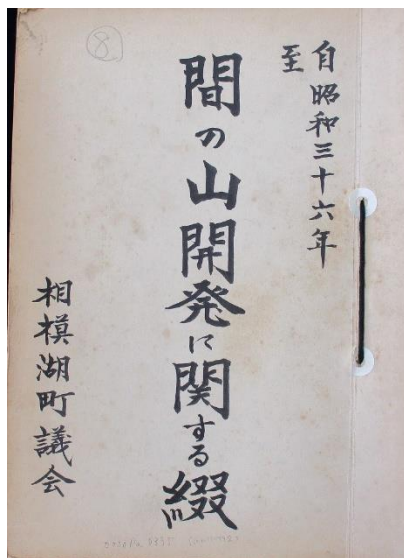 自 昭和三十六年
至
間の山開発に関する綴
相模湖町議会
8